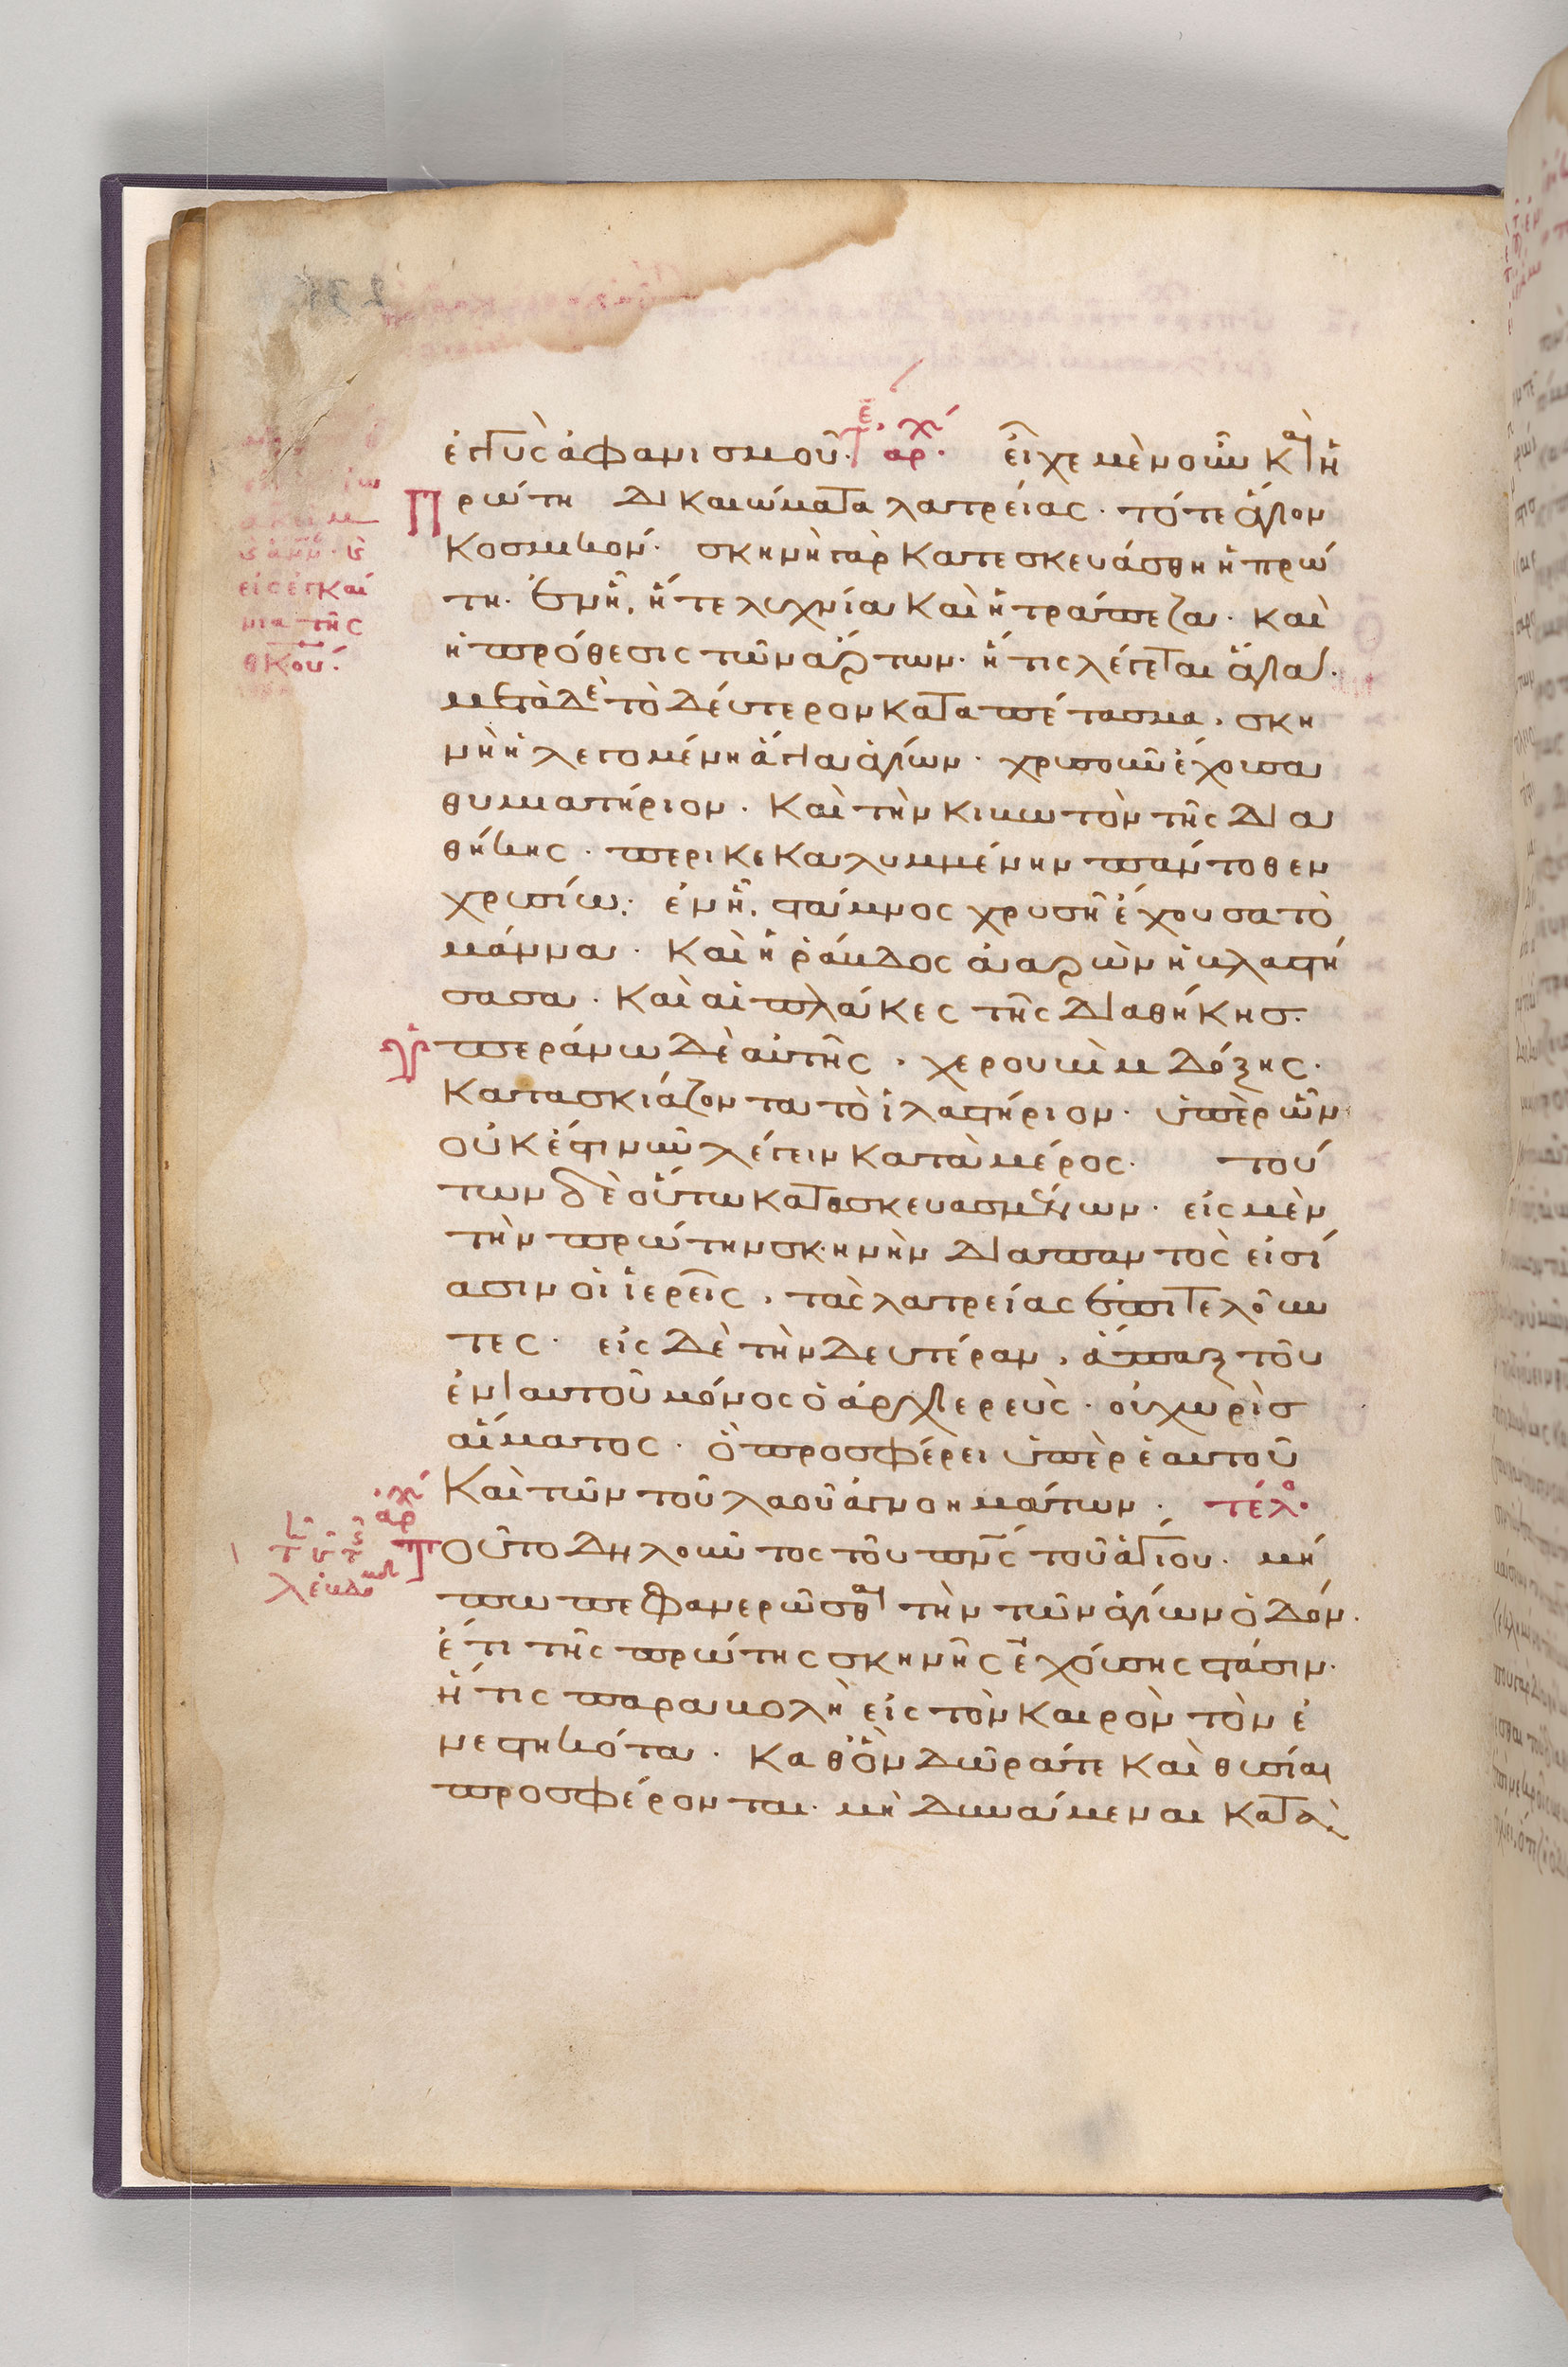 ἐγγὺς ἀφανισμοῦ· ἀρχ εἶχε μὲν οὖν καὶ ἡ
πρώτη δικαιώματα λατρείας· τό τε ἅγιον
κοσμικόν· σκηνὴ γὰρ κατεσκευάσθη ἡ πρώ
τη· ἐν ἧ, ἥ τε λυχνία καὶ ἡ τράπεζα· καὶ
ἡ πρόθεσις τῶν ἄρτων· ἥτις λέγεται ἅγια·
μετὰ δὲ τὸ δεύτερον καταπέτασμα, σκη
νὴ ἡ λεγομένη ἅγια ἁγίων· χρυσοῦν ἔχουσα
θυματήριον· καὶ τὴν κιβωτὸν τῆς δια
θήκης· περικεκαλυμμένην πάντοθεν
χρυσίω· ἐν ἧ, στάμνος χρυσῆ ἔχουσα τὸ
μάννα· καὶ ἡ ῥάβδος ἀαρὼν ἡ βλαστή
σασα· καὶ αἱ πλάκες τῆς διαθήκησ·
ὑπεράνω δὲ αὐτῆς, χερουβὶμ δόξης·
κατασκιάζοντα τὸ ἱλαστήριον· ὑπὲρ ὧν
οὐκ ἔστιν οὖν λέγειν κατὰ μέρος· τού
των δὲ οὕτω κατασκευασμένων· εἰς μὲν
τὴν πρώτην σκηνὴν διαπαντὸς εἰσί
ασιν οἱ ἱερεῖς, τὰς λατρείας ἐπιτελοῦν
τες· εἰς δὲ τὴν δευτέραν, ἅπαξ τοῦ
ἐνιαυτοῦ μόνος ὁ ἀρχιερεὺς· οὐ χωρὶσ
αἵματος· ὃ προσφέρει ὑπὲρ ἑαυτοῦ
καὶ τῶν τοῦ λαοῦ ἀγνοημάτων· τέλο
ἀρχ
τοῦτο δηλοῦντος τοῦ πνς τοῦ ἁγίου· μή
πω πεφανερῶσθαι τὴν τῶν ἁγίων ὁδόν·
ἔτι τῆς πρώτης σκηνῆς ἐχούσης στάσιν·
ἥτις παραβολὴ εἰς τὸν καιρὸν τὸν ἐ
νεστηκότα· καθ' ὃν δῶρά τε καὶ θυσίαι
προσφέρονται· μὴ δυνάμεναι κατὰ
εἰς ἐγκαί
νια τῆς
θκου·